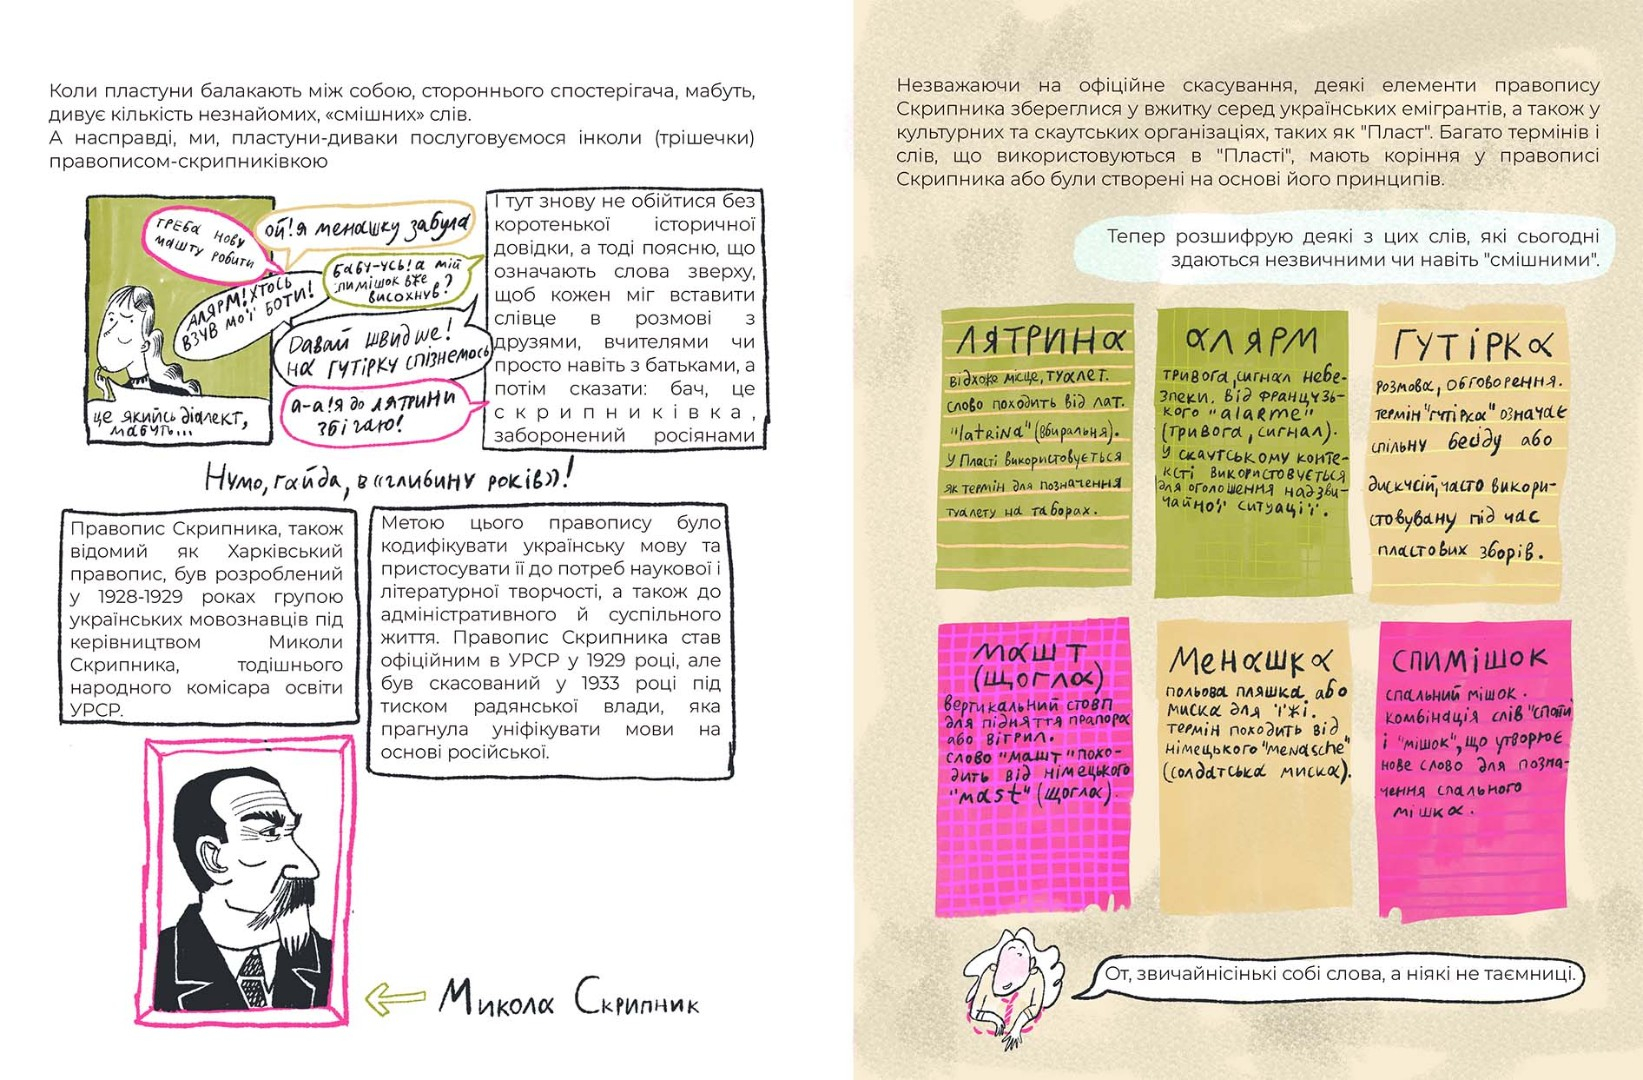 Коли пластуни балакають між собою, стороннього спостерігача, мабуть,
дивує кількість незнайомих, «смішних» слів.
А насправді, ми, пластуни-диваки послуговуємося інколи (трішечки)
правописом-скрипниківкою
ТРЕБА НОВУ
МАШТУ РОБИТИ
ОЙ! Я МЕНАШКУ ЗАБУЛА
АЛЯРМ! ХТОСЬ
ВЗУВ МОЇ БОТИ!
БАБУ-УСЬ! А МІЙ
СПИМІШОК ВЖЕ
ВИСОХНУВ?
ДАВАЙ ШВИДШЕ!
НА ГУТІРКУ СПІЗНЕМОСЬ
А-А! Я ДО ЛЯТРИНИ
ЗБІГАЮ!
ЦЕ ЯКИЙСЬ ДІАЛЕКТ,
МАБУТЬ...
І тут знову не обійтися без
коротенької історичної
довідки, а тоді поясню, що
означають слова зверху,
щоб кожен міг вставити
слівце в розмові з
друзями, вчителями чи
просто навіть з батьками, а
потім сказати: бач, це
скрипниківка,
заборонений росіянами
Нумо, гайда, в «глибину років»!
Правопис Скрипника, також
відомий як Харківський
правопис, був розроблений
у 1928-1929 роках групою
українських мовознавців під
керівництвом Миколи
Скрипника, тодішнього
народного комісара освіти
УРСР.
Метою цього правопису було
кодифікувати українську мову та
пристосувати її до потреб наукової і
літературної творчості, а також до
адміністративного й суспільного
життя. Правопис Скрипника став
офіційним в УРСР у 1929 році, але
був скасований у 1933 році під
тиском радянської влади, яка
прагнула уніфікувати мови на
основі російської.
Микола Скрипник
Незважаючи на офіційне скасування, деякі елементи правопису
Скрипника збереглися у вжитку серед українських емігрантів, а також у
культурних та скаутських організаціях, таких як "Пласт". Багато термінів і
слів, що використовуються в "Пласті", мають коріння у правописі
Скрипника або були створені на основі його принципів.
Тепер розшифрую деякі з цих слів, які сьогодні
здаються незвичними чи навіть "смішними".
ЛЯТРИНА
відхоже місце, туалет.
слово походить від лат.
"latrina" (вбиральня).
У Пласті використовується
як термін для позначення
туалету на таборах.
АЛЯРМ
тривога, сигнал небе-
зпеки. Від французь-
кого "alarme"
(тривога, сигнал).
У скаутському конте-
ксті використовується
для оголошення надзви-
чайної ситуації.
ГУТІРКА
розмова, обговорення.
термін "гутірка" означає
спільну бесіду або
дискусій, часто викори-
стовувану під час
пластових зборів.
МАШТ
(ЩОГЛА)
вертикальний стовп
для підняття прапора
або вітрил.
слово "машт" похо-
дить від німецького
"mast" (щогла).
МЕНАШКА
польова пляшка або
миска для їжі.
термін походить від
німецького "menasche"
(солдатська миска).
СПИМІШОК
спальний мішок.
комбінація слів "спати"
і "мішок", що утворює
нове слово для позна-
чення спального
мішка.
От, звичайнісінькі собі слова, а ніякі не таємниці.